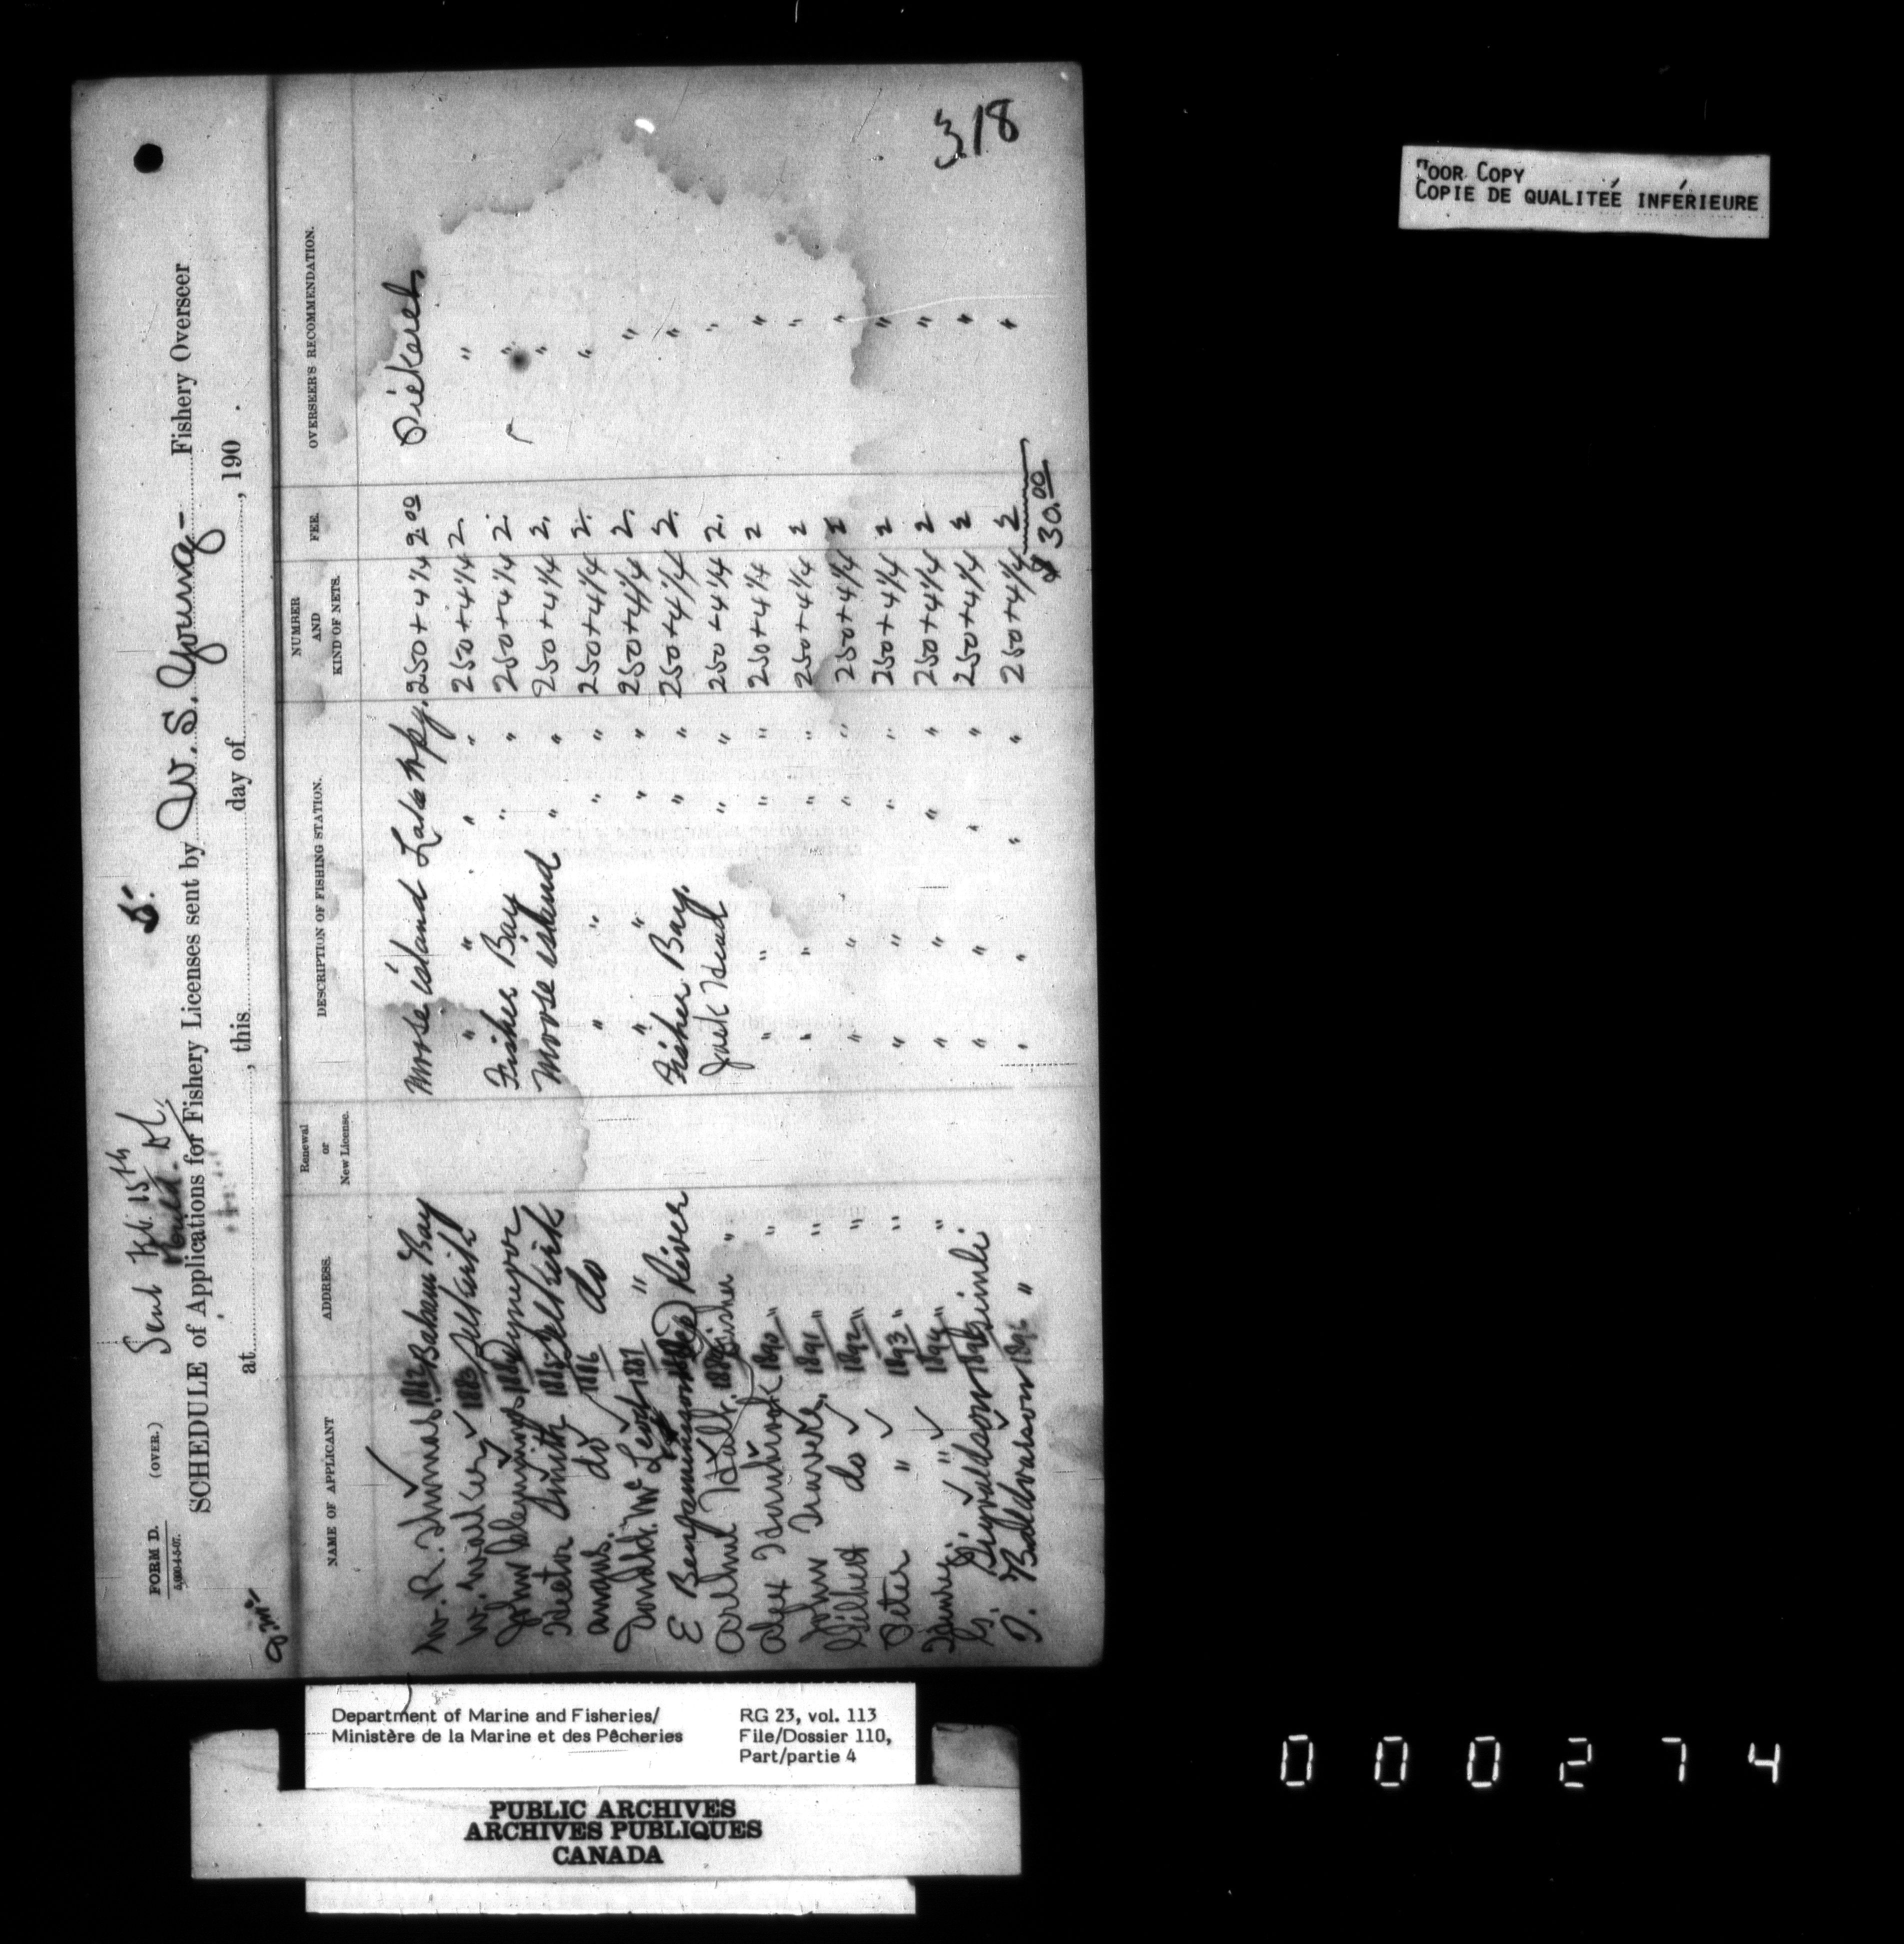 318
FORM D. (OVER.)
5.
Sent Feb. 15th
SCHEDULE of Applications for Fishery Licenses sent by W. S. Young Fishery Overseer
at , this day of , 190 .
NAME OF APPLICANT ADDRESS. Renewal or New License. DESCRIPTION OF FISHING STATION. NUMBER AND KIND OF NETS. FEE. OVERSEER'S RECOMMENDATION.
W. R. 1882 Bay Moose island Lake Wpg. 250 + 4 1/4 2.00 Pickerel
W. Walker 1883 Selkirk " " " " 250 + 4 1/4 2. "
John 1884 Fisher Bay " " 250 + 4 1/4 2. "
Hector Smith 1885 Selkirk Moose island " " 250 + 4 1/4 2. "
Angus do 1886 do " " " " 250 + 4 1/4 2. "
Donald Mc Leod 1887 " " " " " 250 + 4 1/4 2. "
E Benjaminson River Fisher Bay. " " 250 + 4 1/4 2. "
Arthur 1889 Fisher " Jack Head " " 250 + 4 1/4 2. "
Alex 1890 " " " " " " 250 + 4 1/4 2 "
John Travers. 1891 " " " " " " 250 + 4 1/4 2 "
Gilbert do 1892 " " " " " " 250 + 4 1/4 2 "
Peter " 1893 " " " " " " 250 + 4 1/4 2 "
" 1894 " " " " " " 250 + 4 1/4 2 "
G. 1895 Gimli " " " " 250 + 4 1/4 2 "
Baldvalson 1896 " " " " " 250 + 4 1/4 2 "
$ 30.00
POOR COPY
COPIE DE QUALITEÉ INFÉRIEURE
Department of Marine and Fisheries/ RG 23, vol. 113
Ministère de la Marine et des Pêcheries File/Dossier 110,
Part/partie 4
PUBLIC ARCHIVES
ARCHIVES PUBLIQUES
CANADA
000274